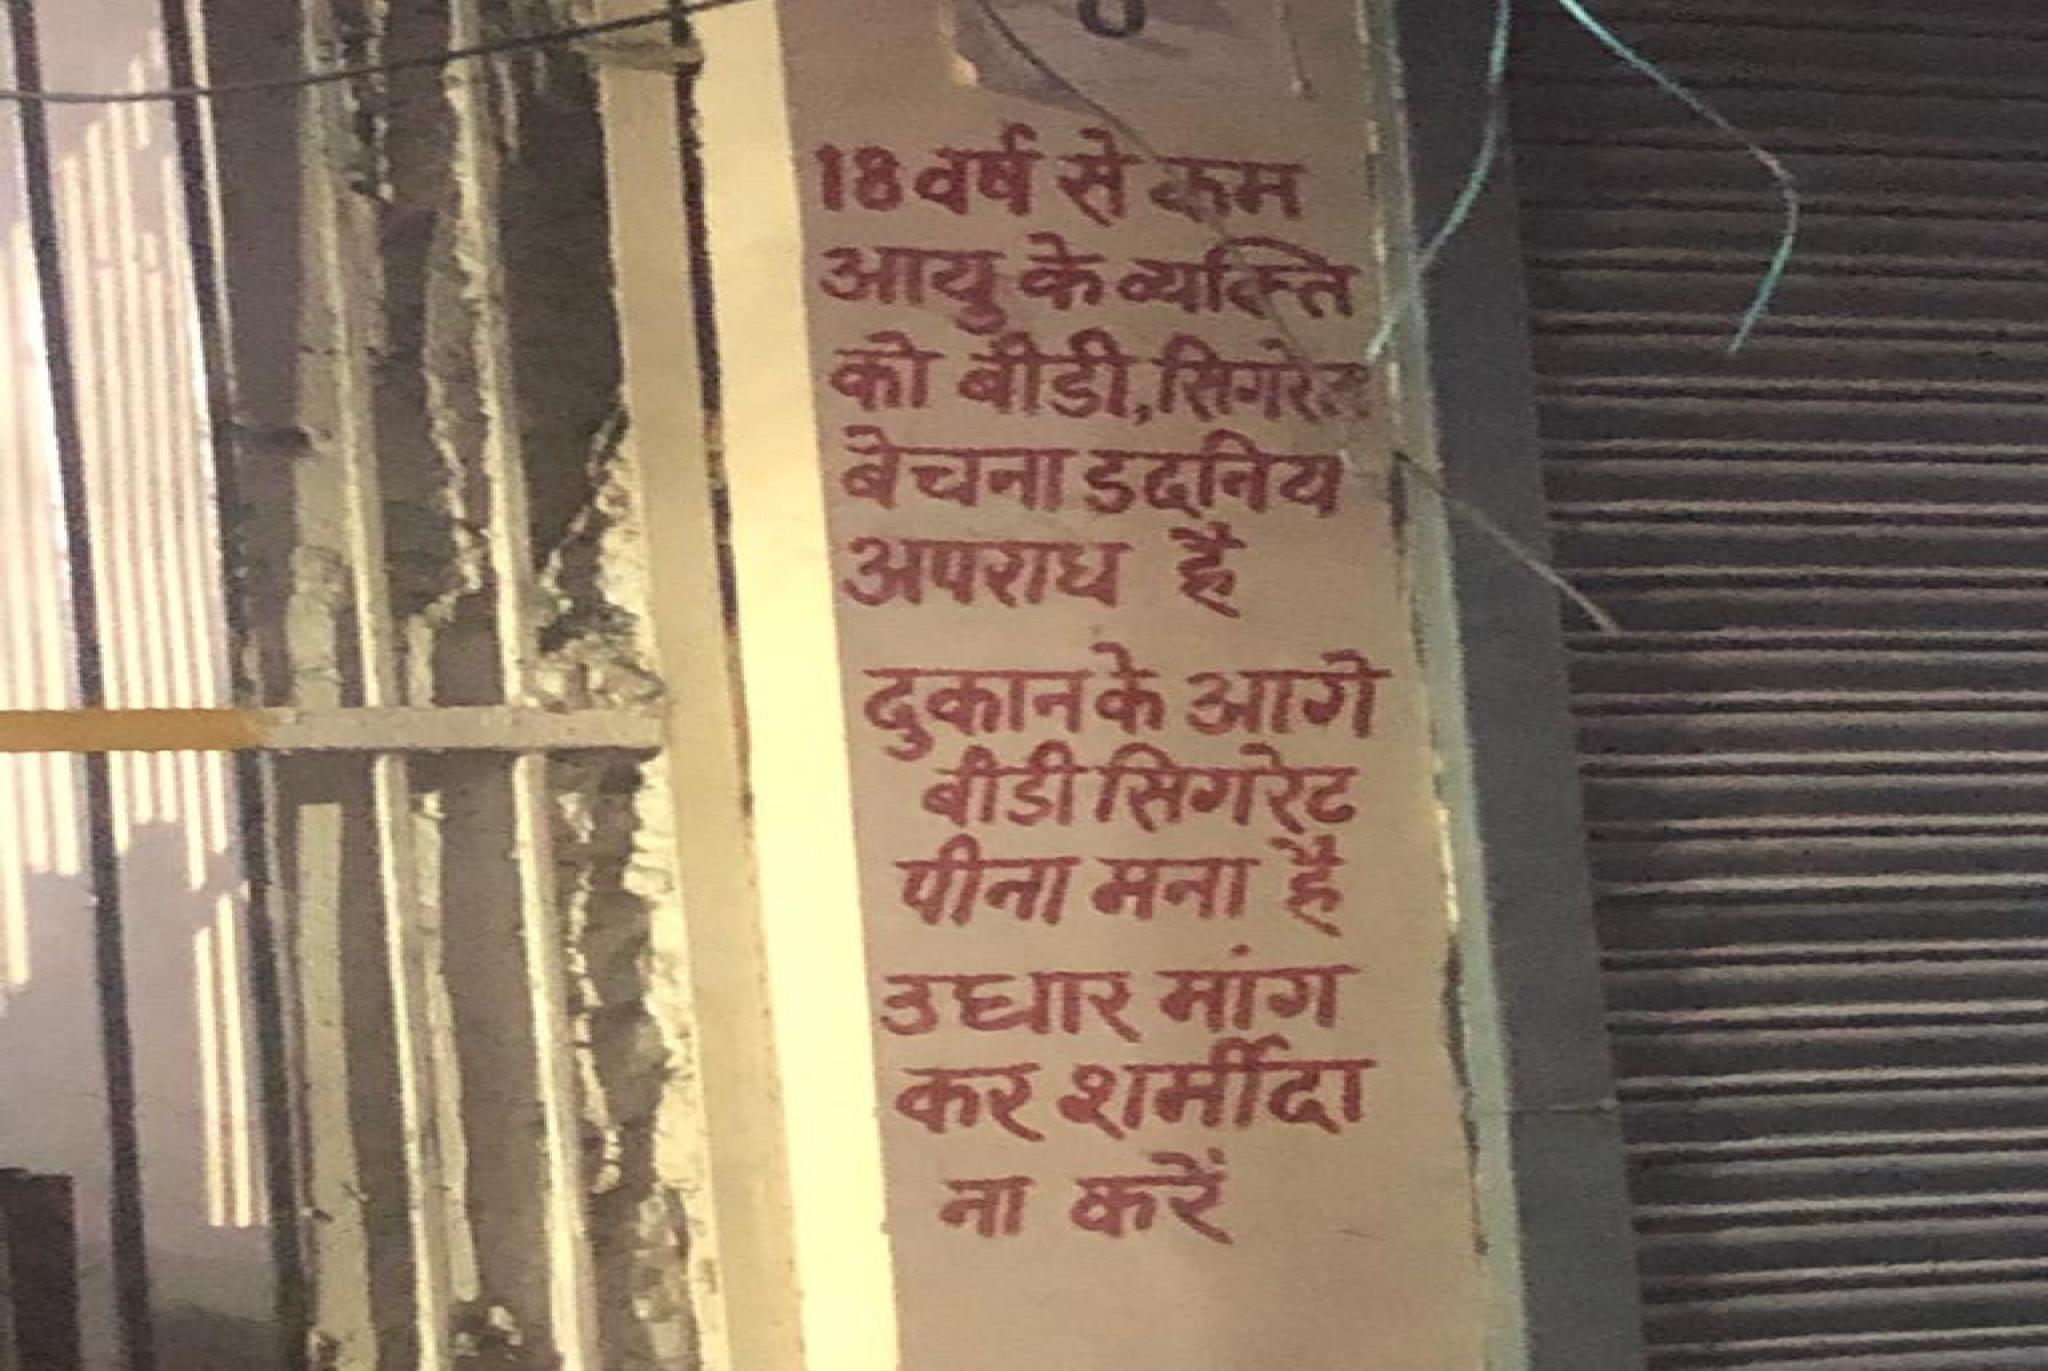 18 वर्ष से कम
आयु के व्यक्ति
को बीडी, सिगरेट
बेचना डदनिय
अपराध है
दुकान के आगे
बीडी सिगरेट
पीना मना है
उधार मांग
कर शर्मीदा
ना करें